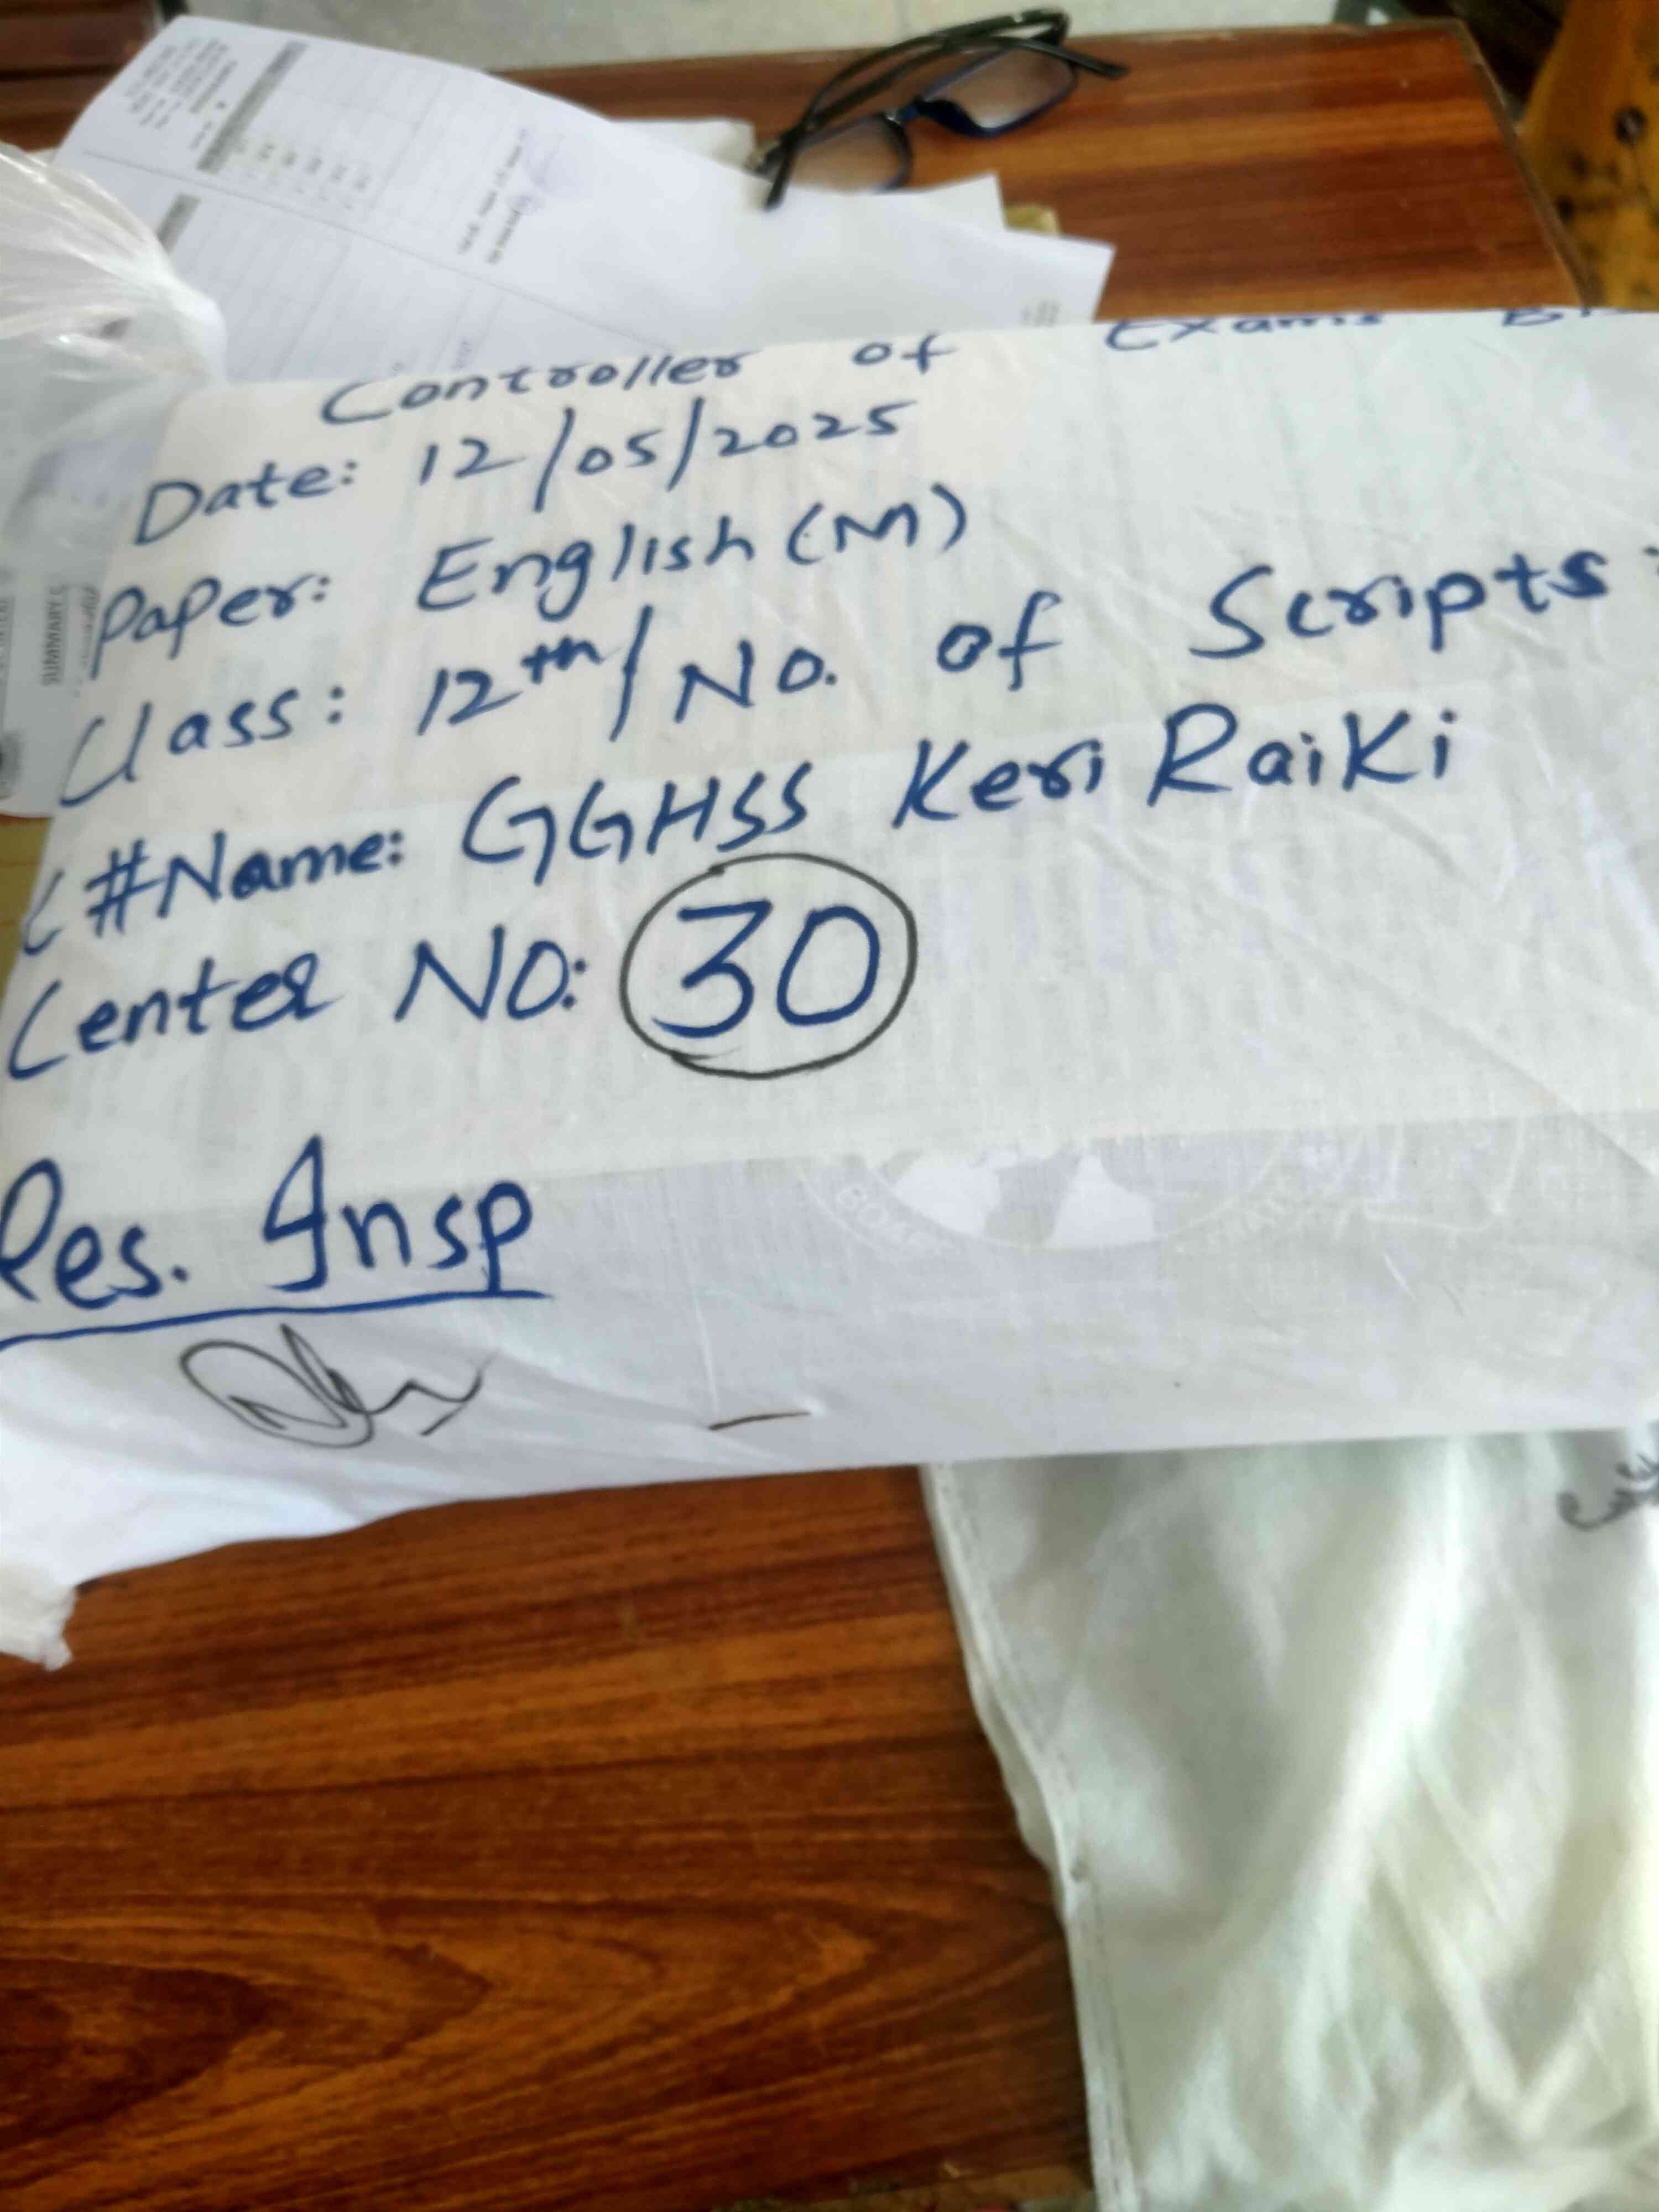 Controller of Exams
Date: 12/05/2025
Paper: English (M)
Class: 12th / No. of Scripts:
C#Name: GGHSS Keri Raiki
Center No: 30
Res. Insp
SUMMARY